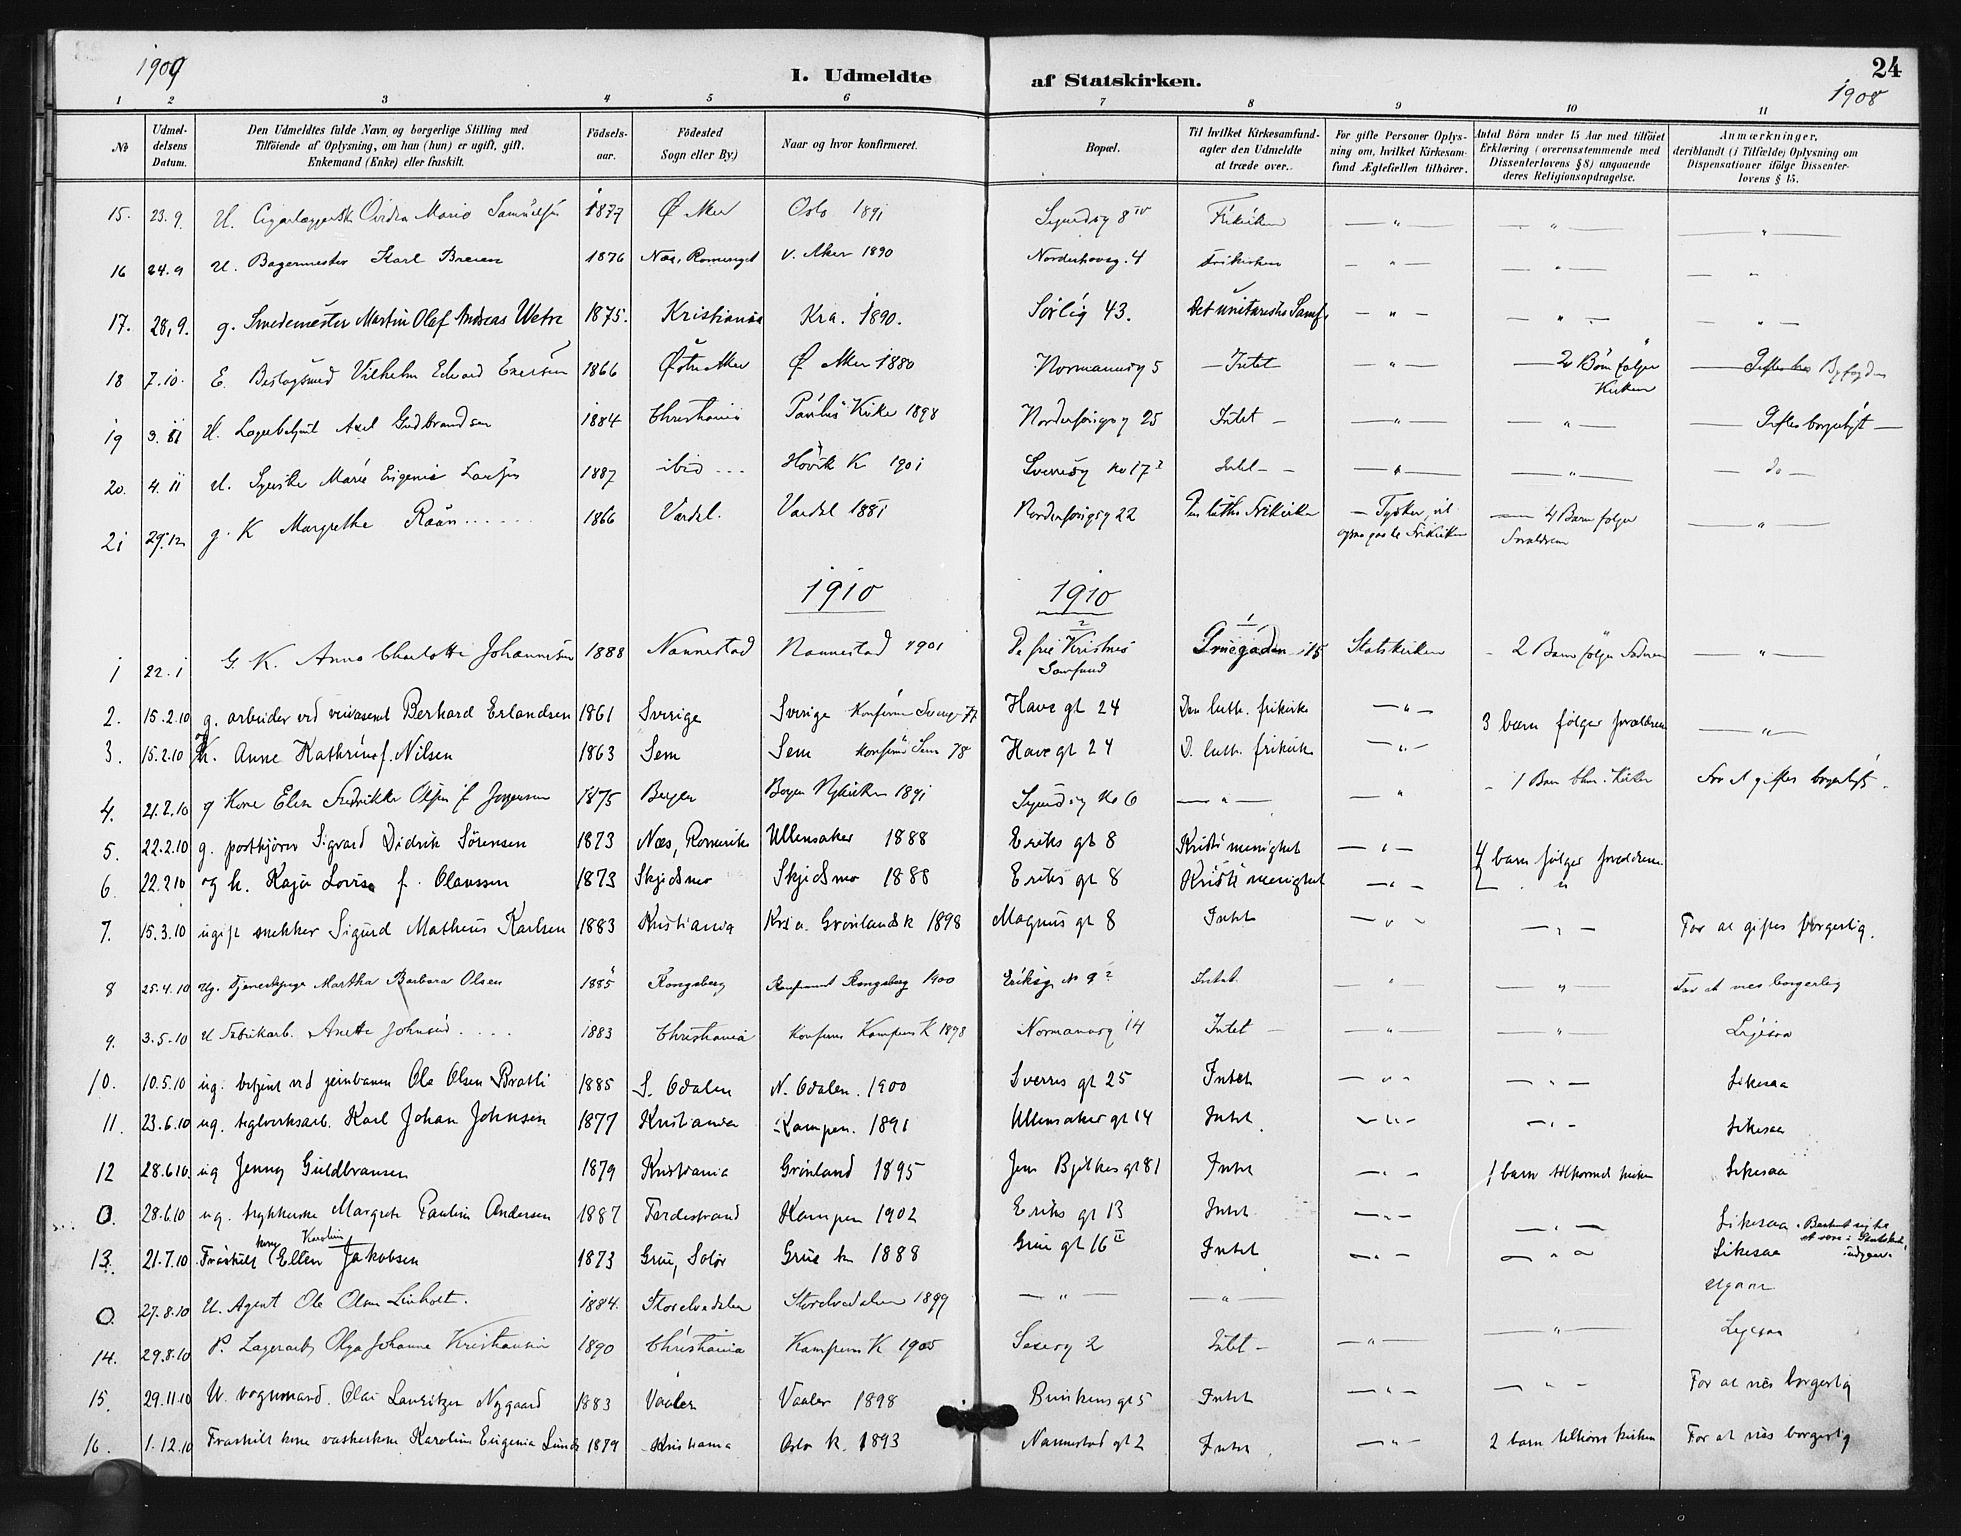 1909
I. Udmeldte af Statskirken.
24
1908
1 2 3 4 5 6 7 8 9 10 11
No
Udmel-
delsens
Datum.
Den Udmeldtes fulde Navn og borgerlige Stilling med
Tilföiende af Oplysning, om han (hun) er ugift, gift,
Enkemand (Enke) eller fraskilt.
Födsels-
aar.
Födested
Sogn eller By.)
Naar og hvor konfirmeret.
Bopæl.
Til hvilket Kirkesamfund-
agter den Udmeldte
at træde over.
For gifte Personer Oplys-
ning om, hvilket Kirkesam-
fund Ægtefællen tilhörer.
Antal Börn under 15 Aar med tilföiet
Erklæring (overensstemmende med
Dissenterlovens § 8) angaaende
deres Religionsopdragelse.
Anmærkninger,
deriblandt (i Tilfælde) Oplysning om
Dispensationer ifölge Dissenter-
lovens § 15.
15. 23.9. U. Maria 1877 Ø Aker Oslo 1891 8 IV Frikirken — " — — " — — " —
16 24.9 U. Bagermester Karl 1876 Næs, Romeriget V. Aker 1890 Norderhovg. 4 Frikirken — " — — " — — " —
17. 28,9. g. Smedemester Martin Olaf Andreas Wetre 1875. Kristiania Kra. 1890. Sörlig 43. Det unitariske Samf. — " — — " — — " —
18 7.10. E. Beslagsmed Vilhelm Edvard 1866 Østre Aker Ø Aker 1880 Normannsg 5 — Intet — " — — 2 Börn følger
Kirken Byfogden
19 3.11 U. Axel Gudbrandsen 1884 Christiania Paulus Kirke 1898 25 Intet — — " — — " — Giftes borgerligt —
20. 4.11 U. Syerske Marie Eugenie 1887 ibid --- Høvik K 1901 no 17 Intet - - — " — — " — — do —
21 29.12 g. K Margrethe Raan ...... 1866 Vardal. Vardal 1881 22 Den luthr Frikirke — Tysker, vil
Frikirken — 4 Barn følger
Forældrene — " —
1910 1910
1 22.1 G. K. Anna Charlotte Johannesen 1888 Nannestad Nannestad 1901 De frie Kristnes
Samfund Gruegaden 15 Statskirken - 2 Barn følger Faderen — " —
2. 15.2.10 g. arbeider ved Berhard Erlandsen 1861 Sverige Sverige 77 Have gt 24 Den luth. frikirke — " — 3 barn følger forældrene — " —
3. 15.2.10 K. Anne Kathrine f. Nilsen 1863 Sem Sem Sem 78 Have gt 24 D. luth. frikirke — " —
4. 21.2.10 g Kone Elen Fredrikke Olsen f Jørgensen 1875 Bergen Bergen Nykirken 1891 No 6 — " — — " - 1 Barn Kirken For at giftes borgerligt.
5. 22.2.10 g. postkjører Sigvard Didrik Sörensen 1873 Næs, Romerike Ullensaker 1888 Eriks gt 8 Kristi menighet — " — 4 barn følger forældrene
6. 22.2.10 og k. Kaja Lovise f. Olaussen 1873 Skjedsmo Skjedsmo 1888 Eriks gt 8 Kristi menighet — " — "
7. 15.3.10 ugift snekker Sigurd Matheus Karlsen 1883 Kristiania Kria. Grönlands k 1898 Magnus gt 8 Intet — " — — " — For at giftes borgerlig.
8 25.4.10 Ug. Tjenestepige Martha Barbara Olsen 1885 Kongsberg Kongsberg 1900 Eriksg No 9 Intet. — " — — " — For at vies borgerlig
9. 3.5.10 U Fabrikarb. Anette Johnsrud .... 1883 Christiania Kampens K 1898 Normannsg 14 Intet — — " — — " — Ligesaa
10. 10.5.10 ug. betjent ved jernbanen Ole Olsen Bratli 1885 S. Odalen N. Odalen. 1900 Sverres gt 25 Intet — " — — " — Likesaa
11. 23.6.10 ug. teglverksarb. Karl Johan Johnsen 1877 Kristiania Kampen. 1891 Ullensaker gt 14 Intet — " — — " — Likesaa
12 28.6.10. ug Jenny Guldbransen 1879 Kristiania Grönland 1895 Jens Bjelkes gt 81 Intet — " — 1 barn kirken Likesaa
O. 28.6.10 ug. trykkerske Margrete Pauline Andersen 1887 Kampen 1902 Eriks gt 13 Intet — " — — " — Likesaa. at være i Statskirken
13. 21.7.10 Fraskilt kone Ellen Karoline Jakobsen 1873 Grue, Solør Grue k. 1888 Grue gt 16 II Intet — " — — " — Likesaa
O. 27.8.10 U. Agent Ole Olsen 1884. Storelvedalen Storelvedalen 1899 — " — — " — Utgaar
14. 29.8.10 P. Lagerarb. Olga Johanne Kristiansen 1890 Christiania Kampens K 1905 2 Intet — — " — — " — Ligesaa
15. 29.11.10 U. vognmand. Olai Lauritzen Nygaard 1883 Vaaler Vaaler 1898 gt 5 Intet — " — — " — For at vies borgerlig
16. 1.12.10 Fraskilt kone vaskerkone Karoline Eugenie Lund 1879 Kristiania Oslo k. 1893 Nannestad gt 2 Intet — " — 2 barn tilhører kirken For at vies borgerlig